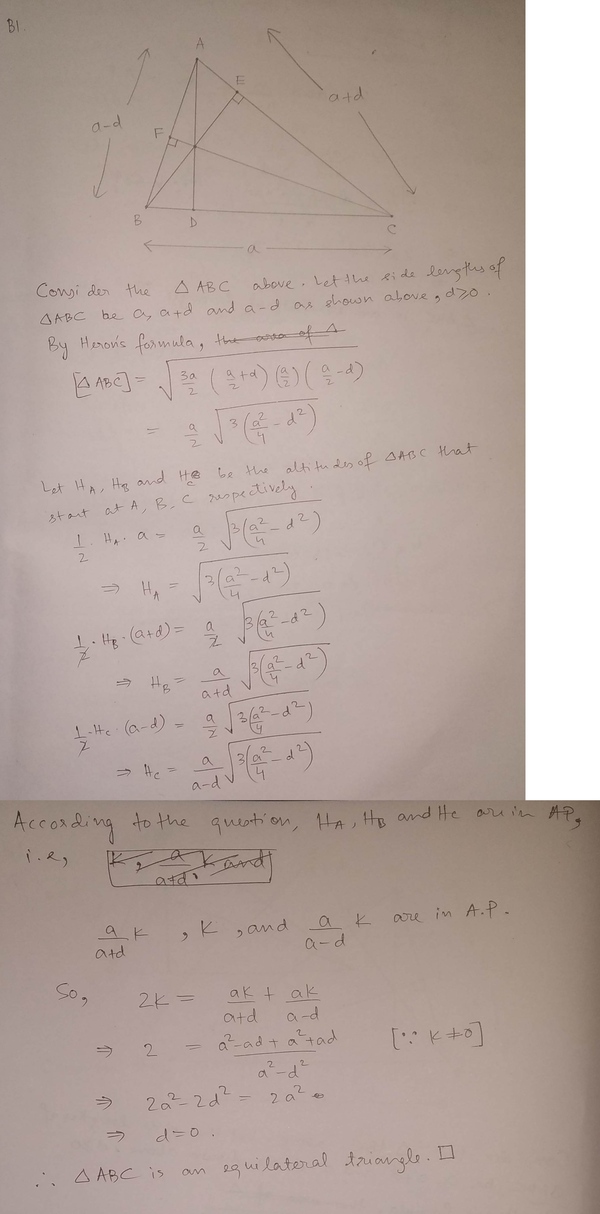 B1.
A
E
a-d
a+d
F
B
D
C
a
Consider the △ABC above. Let the side lengths of
△ABC be a, a+d and a-d as shown above, d≥0.
By Heron's formula, the area of △
[△ABC] = √(3a/2 (a/2+d)(a/2)(a/2-d))
= a/2 √(3(a²/4 - d²))
Let H_A, H_B and H_C be the altitudes of △ABC that
start at A, B, C respectively.
1/2 · H_A · a = a/2 √(3(a²/4 - d²))
⇒ H_A = √(3(a²/4 - d²))
1/2 · H_B · (a+d) = a/2 √(3(a²/4 - d²))
⇒ H_B = a/(a+d) √(3(a²/4 - d²))
1/2 · H_C · (a-d) = a/2 √(3(a²/4 - d²))
⇒ H_C = a/(a-d) √(3(a²/4 - d²))
According to the question, H_A, H_B and H_C are in AP,
i.e, K, a/(a+d) K and
a/(a+d) K, K, and a/(a-d) K are in A.P.
So, 2K = aK/(a+d) + aK/(a-d)
⇒ 2 = (a²-ad+a²+ad)/(a²-d²) [∵ K≠0]
⇒ 2a²-2d² = 2a²
⇒ d=0.
∴ △ABC is an equilateral triangle. □